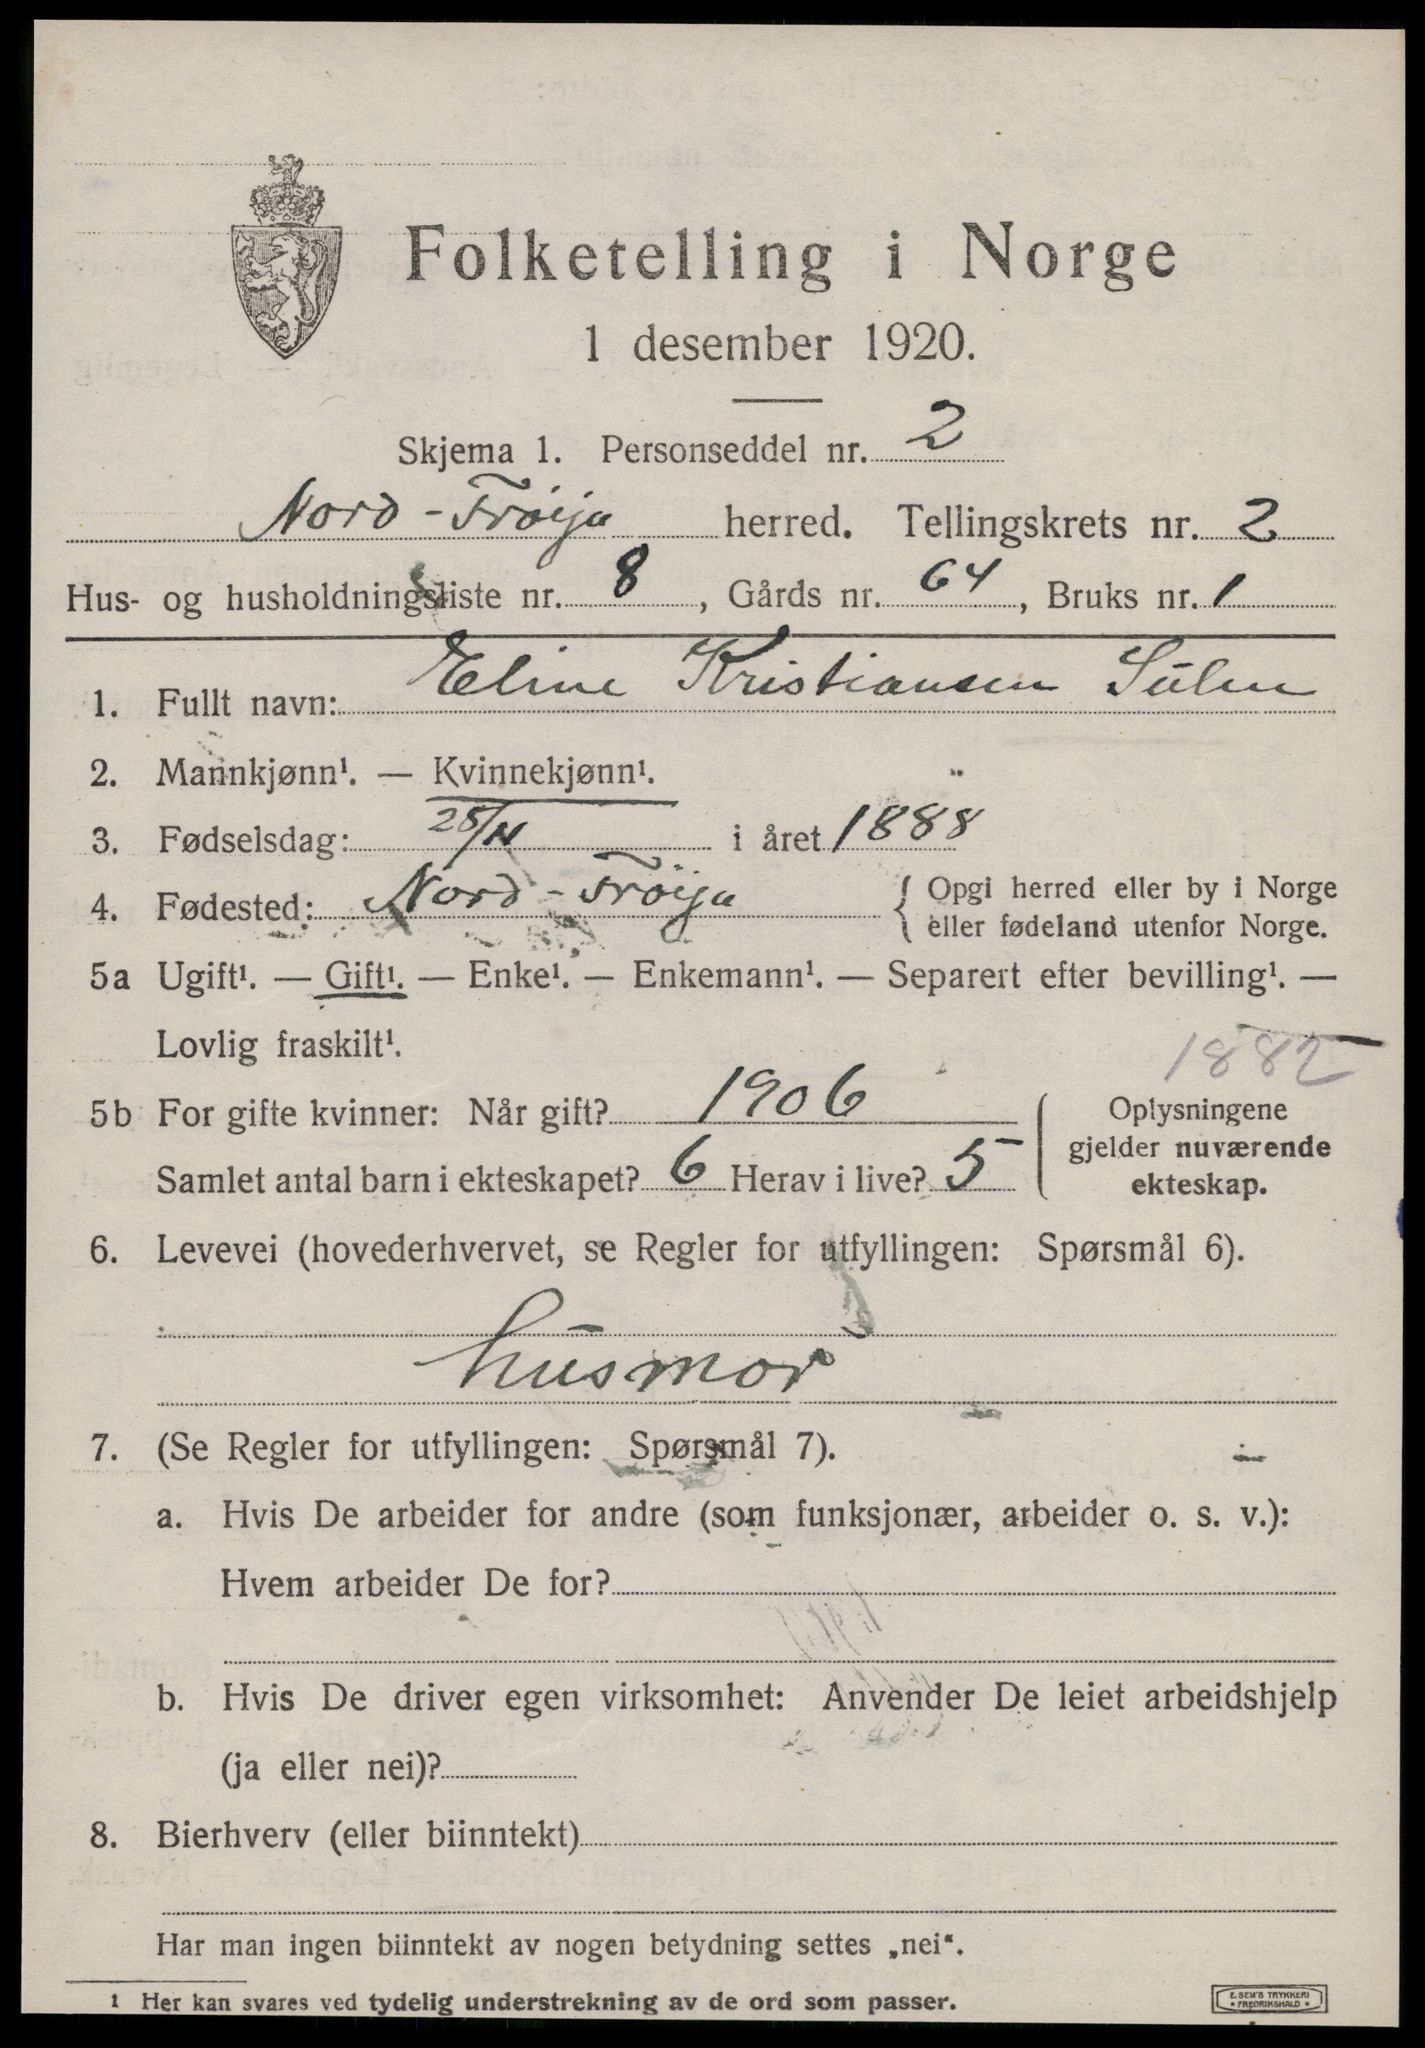 Folketelling i Norge
1 desember 1920.
Skjema 1. Personseddel nr. 2
Nord-Frøija herred. Tellingskrets nr. 2
Hus- og husholdningsliste nr. 8, Gårds nr. 64, Bruks nr. 1
1. Fullt navn: Eline Kristiansen Sulen
2. Mannkjønn¹. — Kvinnekjønn¹.
3. Fødselsdag: i året 1888
4. Fødested: Nord-Frøija { Opgi herred eller by i Norge
eller fødeland utenfor Norge.
5a Ugift¹. — Gift¹. — Enke¹. — Enkemann¹. — Separert efter bevilling¹. —
Lovlig fraskilt¹.
1882
5b For gifte kvinner: Når gift? 1906
Samlet antal barn i ekteskapet? 6 Herav i live? 5
Oplysningene
gjelder nuværende
ekteskap.
6. Levevei (hovederhvervet, se Regler for utfyllingen: Spørsmål 6).
husmor
7. (Se Regler for utfyllingen: Spørsmål 7).
a. Hvis De arbeider for andre (som funksjonær, arbeider o. s. v.):
Hvem arbeider De for?
b. Hvis De driver egen virksomhet: Anvender De leiet arbeidshjelp
(ja eller nei)?
8. Bierhverv (eller biinntekt)
Har man ingen biinntekt av nogen betydning settes „nei“.
1 Her kan svares ved tydelig understrekning av de ord som passer.
E. SEM'S TRYKKERI
• FREDRIKSHALD •